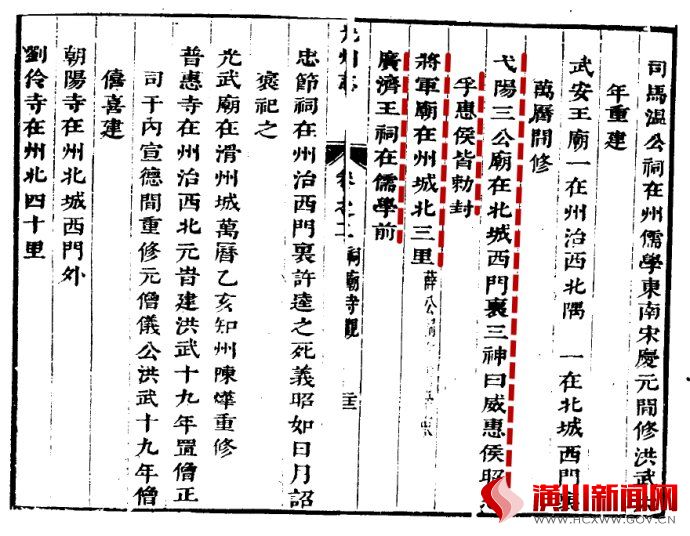 司馬溫公祠在州儒學東南宋慶元間修洪武
年重建
武安王廟一在州治西北隅 一在北城西門裏
萬曆間修
弋陽三公廟在北城西門裏三神曰威惠侯昭
孚惠侯皆勅封
將軍廟在州城北三里
廣濟王祠在儒學前
光州志
卷之二
祠廟寺觀
忠節祠在州治西門裏許逵之死義昭如日月詔
褒祀之
光武廟在滑州城萬曆乙亥知州陳燁重修
普惠寺在州治西北元昔建洪武十九年置僧正
司于內宣德間重修元僧儀公洪武十九年僧
僖喜建
朝陽寺在州北城西門外
劉伶寺在州北四十里
潢川新闻网
WWW.HCXWW.GOV.CN